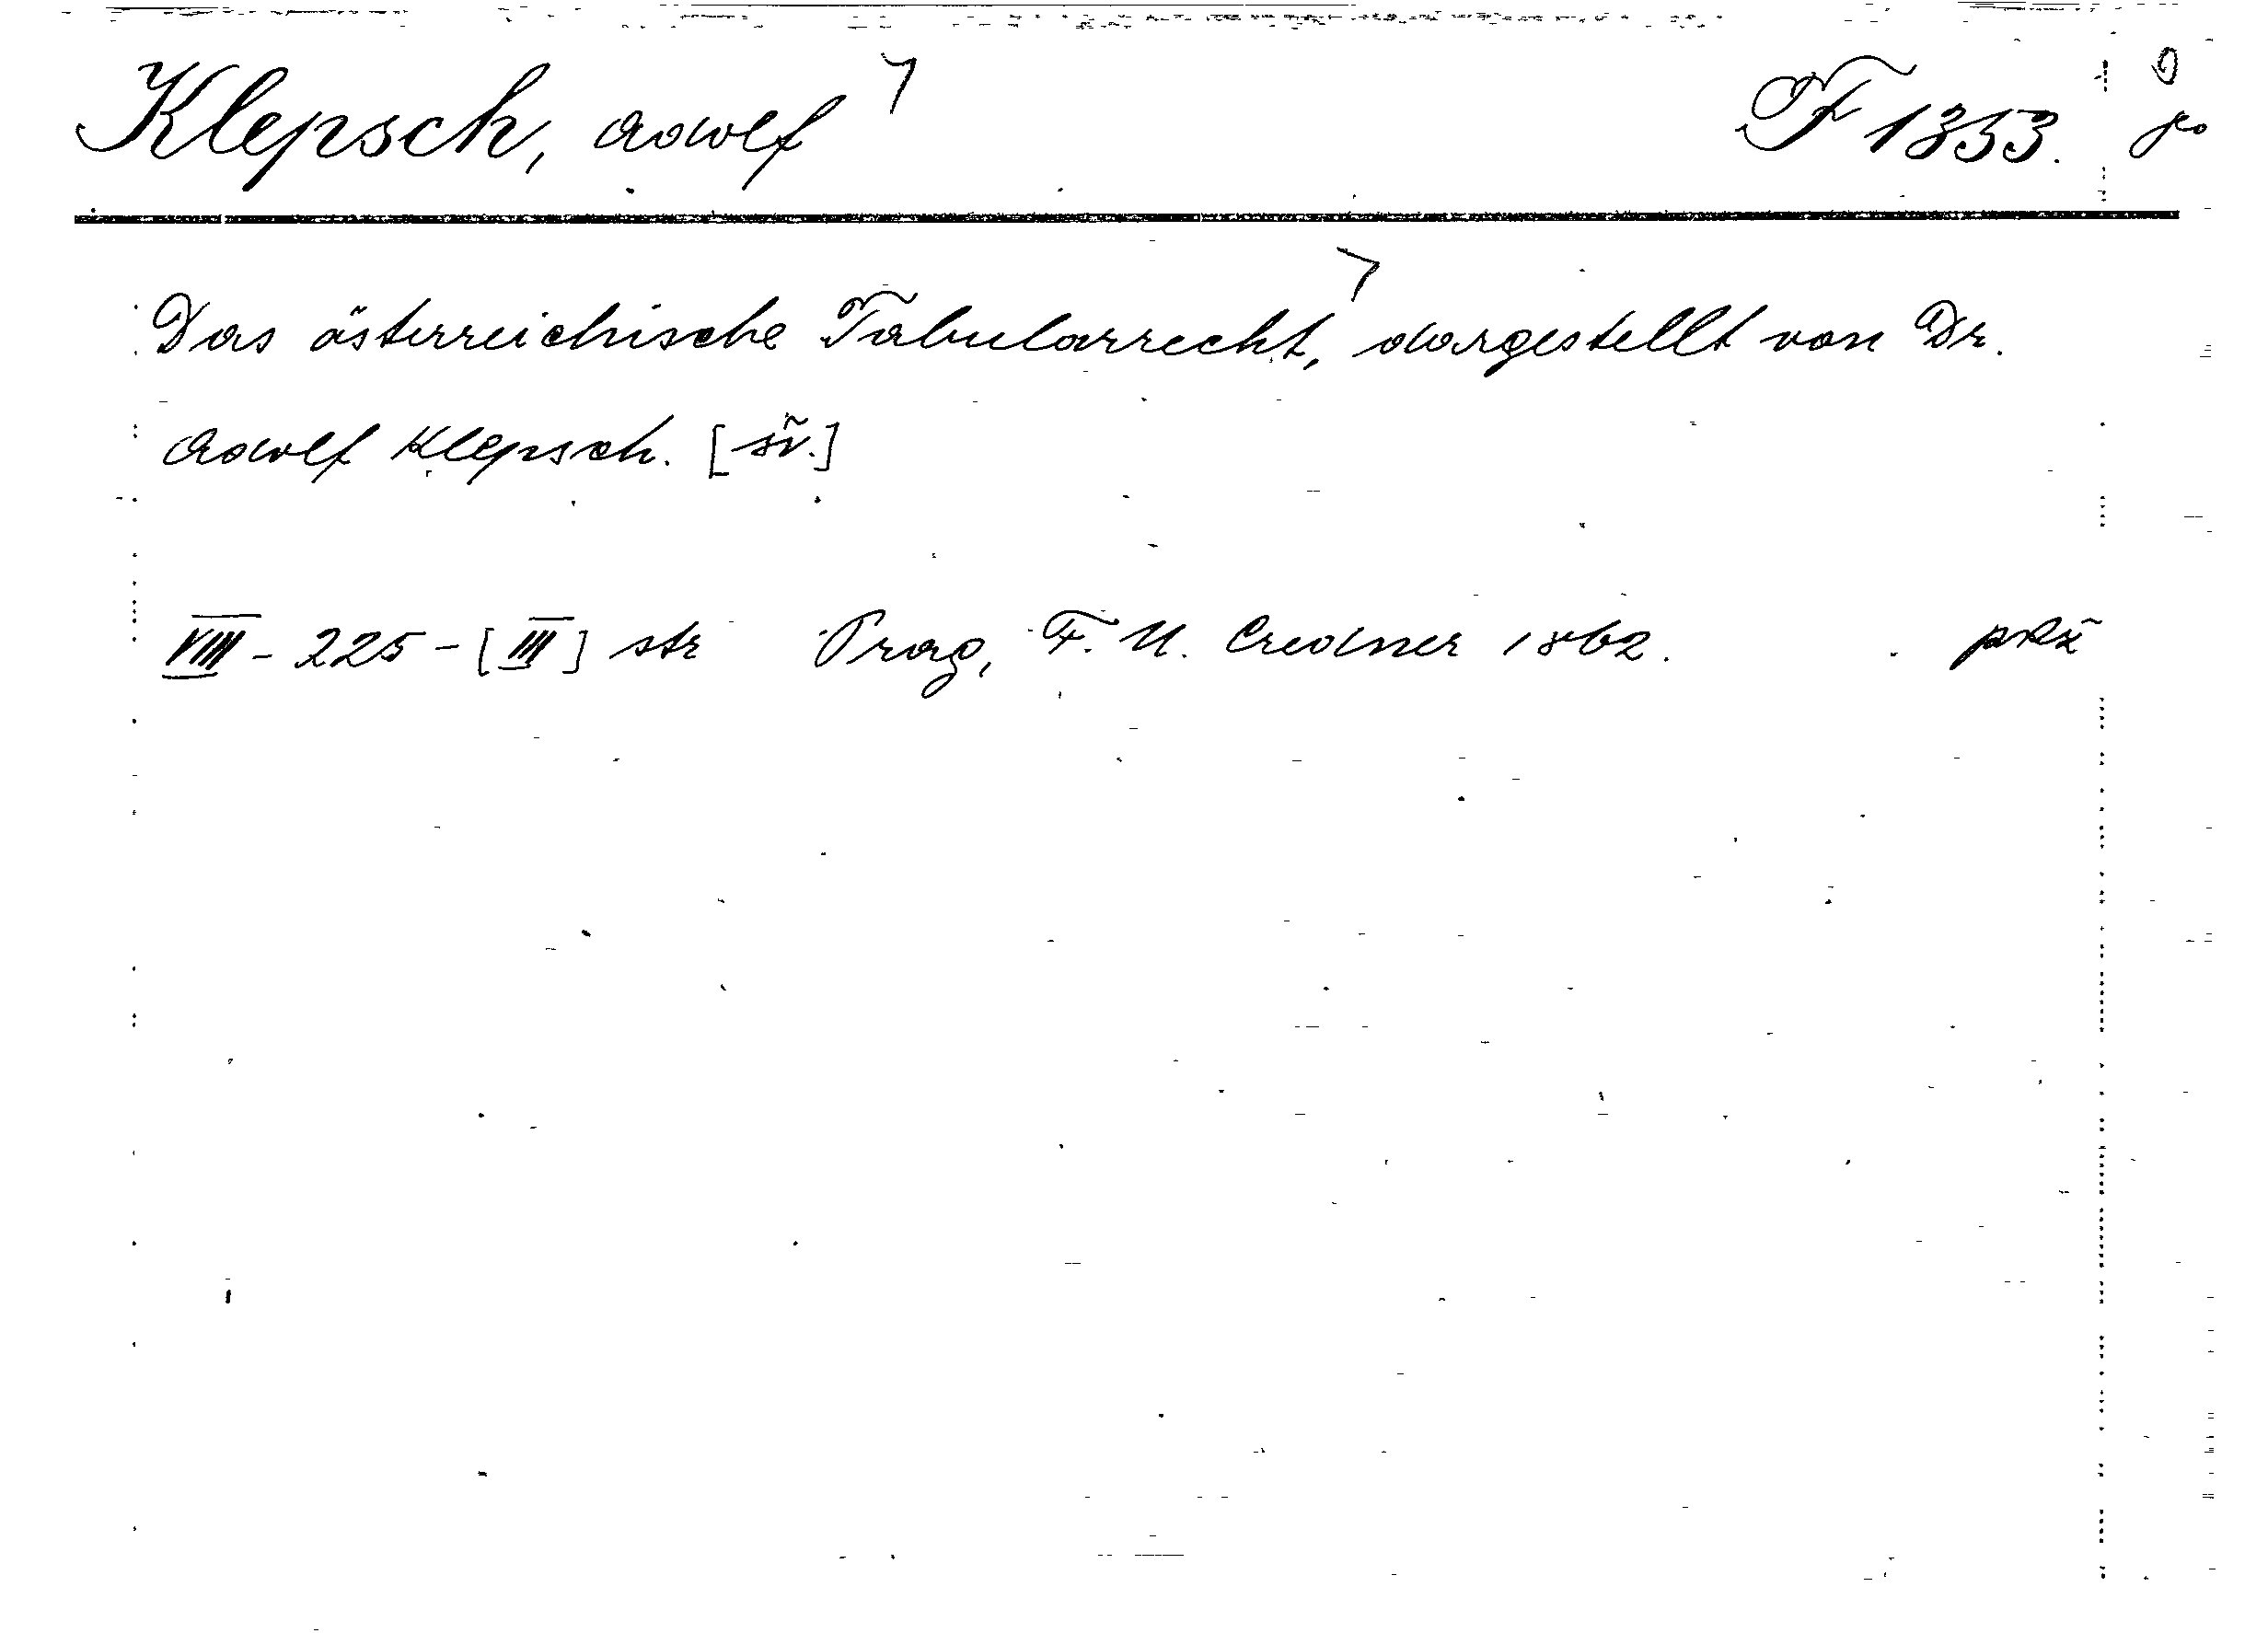 Klepsch, Adolf F 1353.
Das österreichische Tabularrecht, dargestellt von Dr.
Adolf Klepsch. [sv.]
VIII - 225 - [III] str Prag, F. A. Credner 1862.